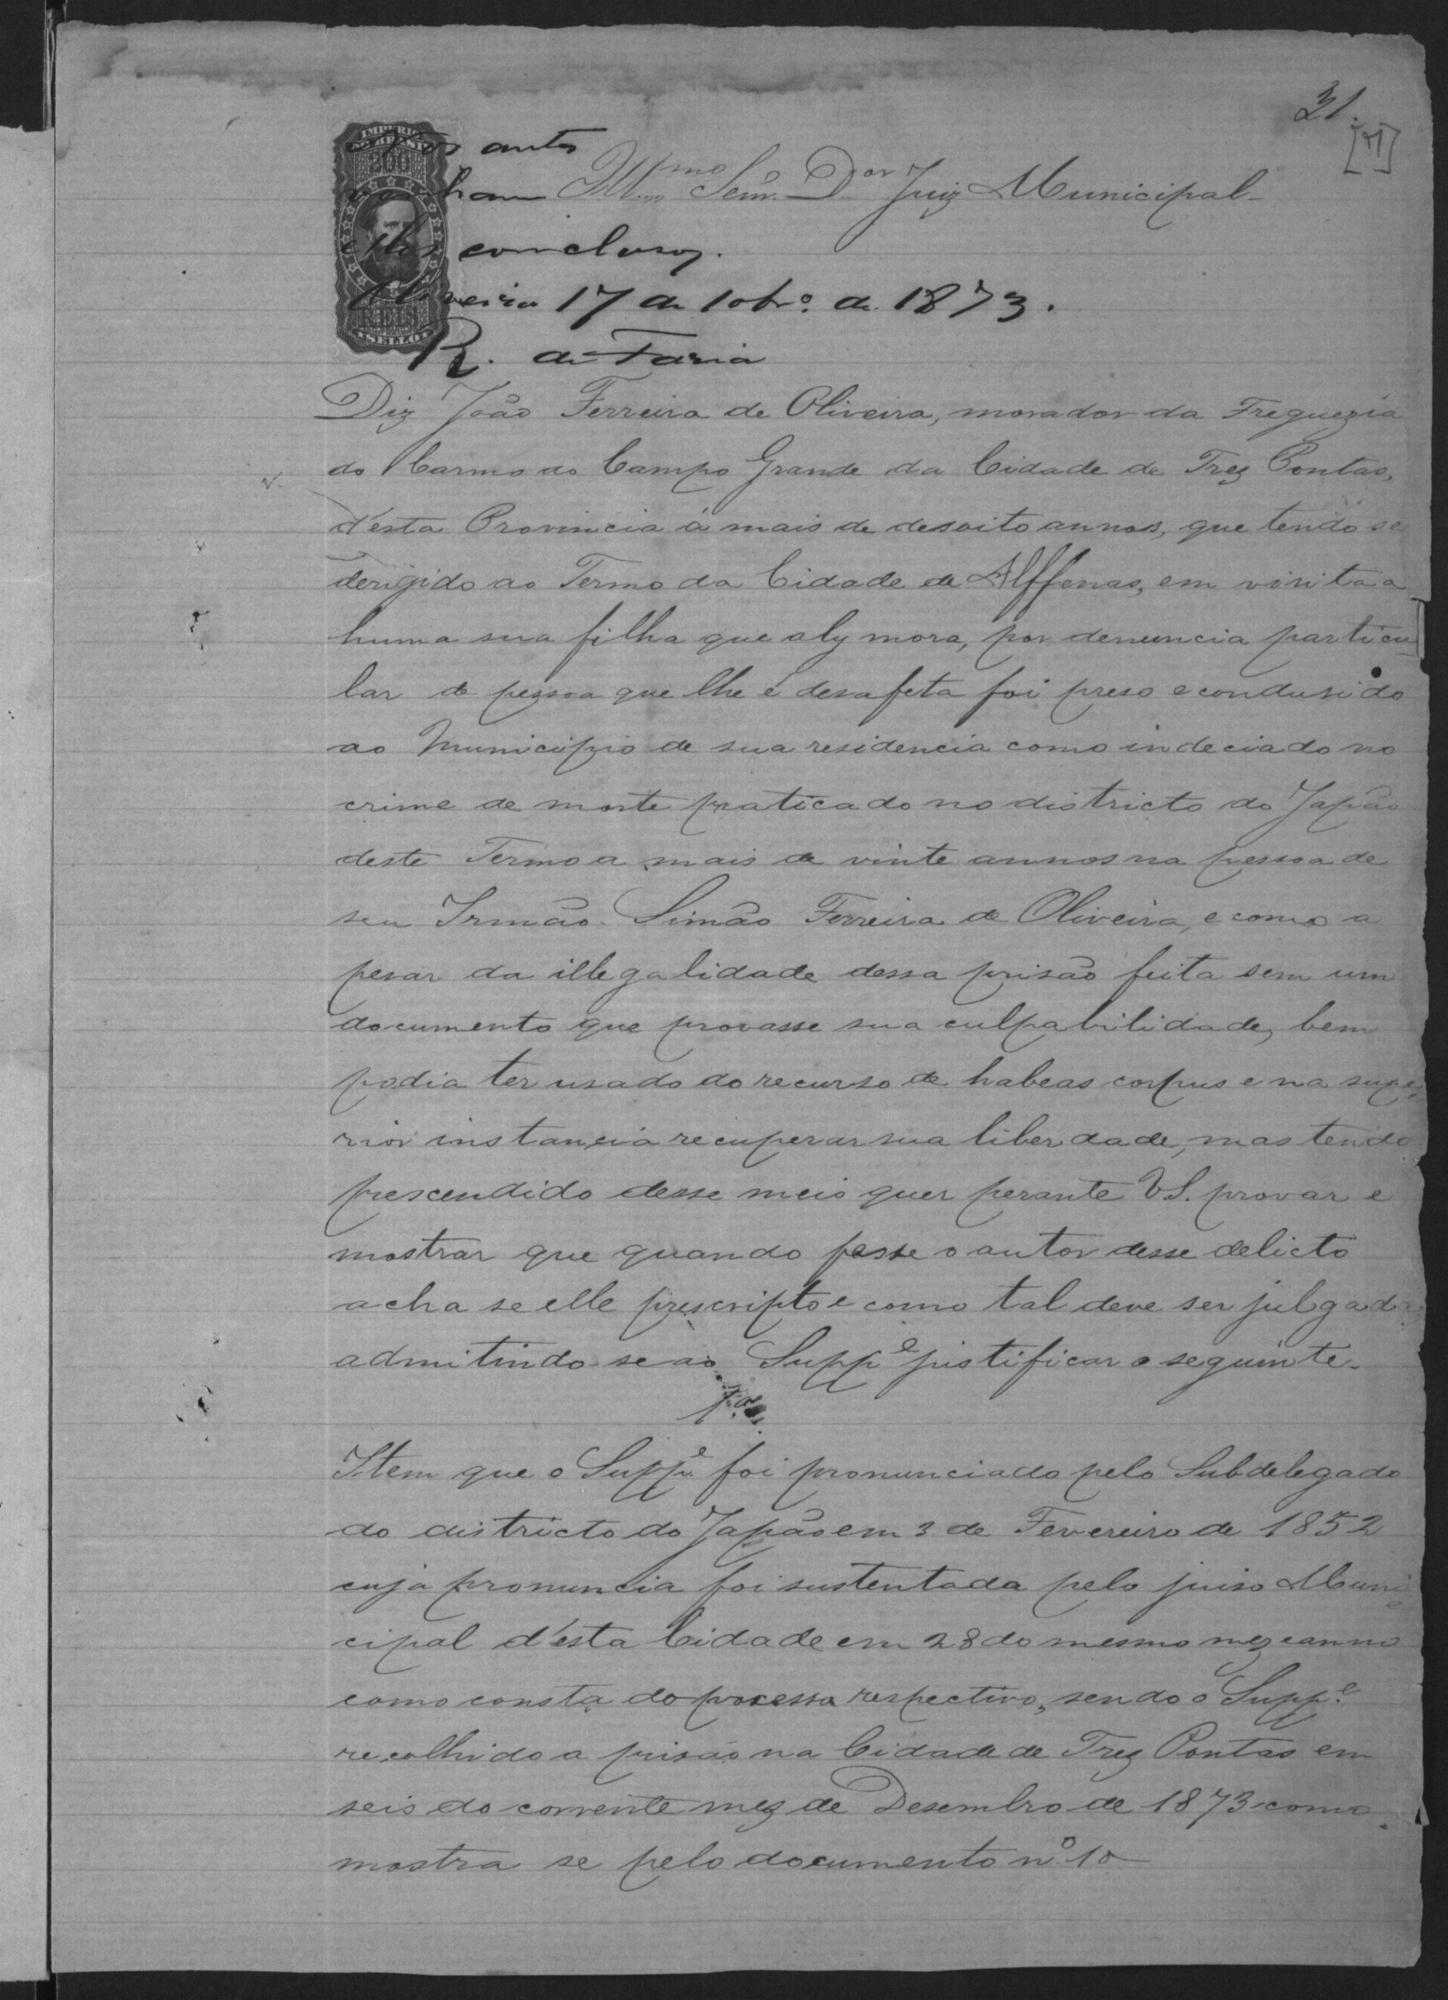 31.
[M]
IMPERIO
DO BRASIL
200
REIS
SELLO
Nos autos
venham Illmo Senr. Dor Juiz Municipal
conclusos.
Oliveira 17 de 10bro. de 1873.
R. de Faria
Diz João Ferreira de Oliveira, morador da Freguezia
do Carmo do Campo Grande da Cidade de Trez Pontas,
d'esta Provincia á mais de desoito annos, que tendo se
derigido ao Termo da Cidade de Alffenas, em visita a
huma sua filha que aly mora, por denuncia particu
lar de pessoa que lhe é desafeta foi preso e condusido
ao Municipio de sua residencia como indeciado no
crime de morte praticado no districto do Japão
deste Termo a mais de vinte annos na pessoa de
seu Irmão Simão Ferreira de Oliveira, e como a
pesar da illegalidade dessa prisão feita sem um
documento que provasse sua culpabilidade, bem
podia ter usado do recurso de habeas corpus e na supe
rior instancia recuperar sua liberdade, mas tendo
prescendido desse meio quer perante V.S. provar e
mostrar que quando fosse o autor desse delicto
acha se elle prescripto e como tal deve ser julgado
admitindo-se ao Suppe justificar o seguinte-
1o
Item que o Suppe foi pronunciado pelo Subdelegado
do districto do Japão em 3 de Fevereiro de 1852
cuja pronuncia foi sustentada pelo juiso Muni
cipal d'esta Cidade em 28 do mesmo mez e anno
como consta do processo respectivo, sendo o Suppe
recolhido a prisão na Cidade de Trez Pontas em
seis do corrente mez de Desembro de 1873 como
mostra se pelo documento no 1o